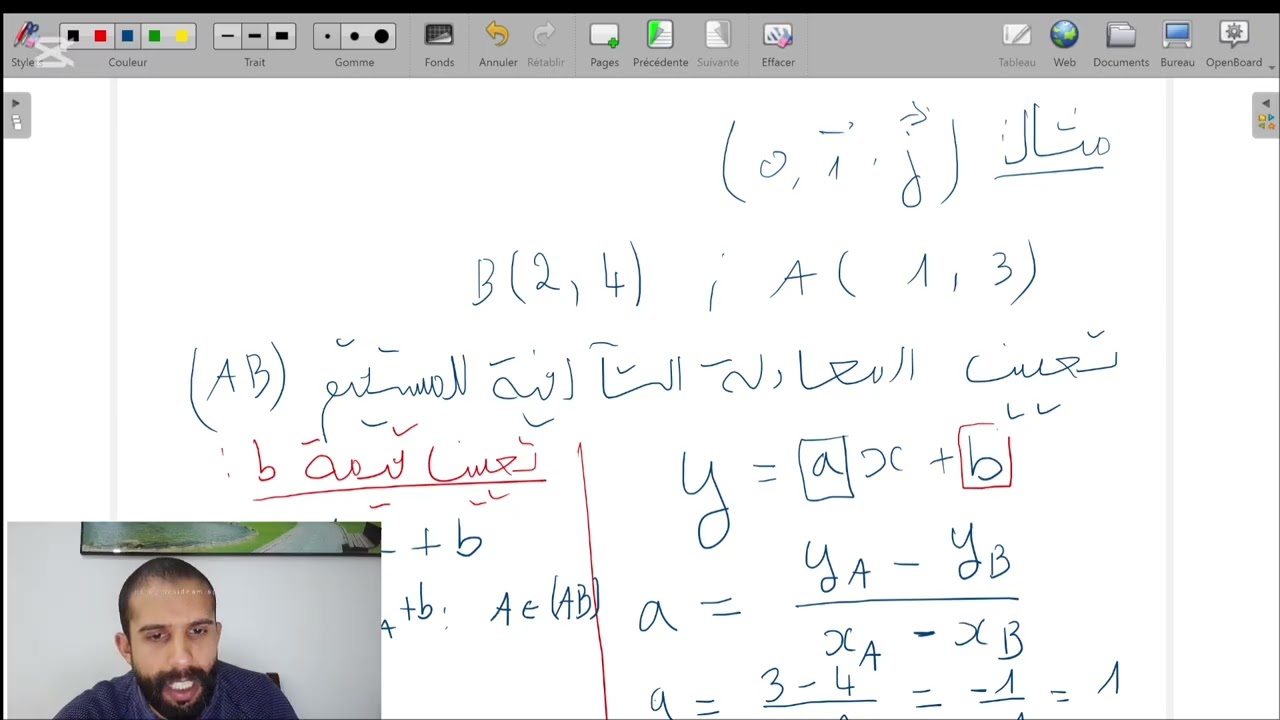 Stylet Couleur Trait Gomme Fonds Annuler Rétablir Pages Précédente Suivante Effacer Tableau Web Documents Bureau OpenBoard
مثال (0, i, j)
A(1, 3) ; B(2, 4)
تعيين المعادلة التآلفية للمستقيم (AB)
y = ax + b
a = (yA - yB) / (xA - xB)
a = 3 - 4 = -1 = 1
تعيين قيمة b :
+ b
A + b : A ∈ (AB)